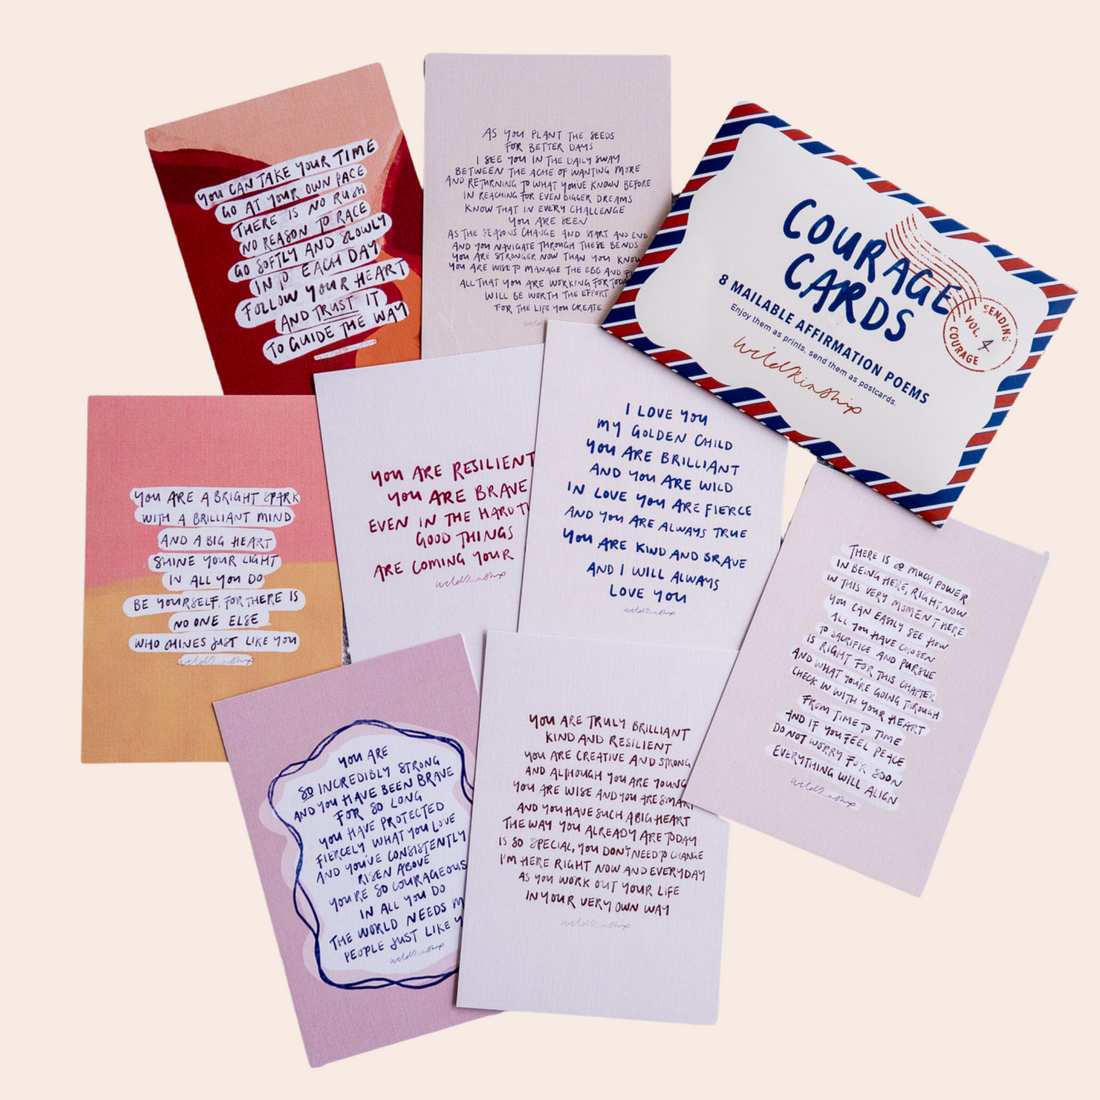 YOU CAN TAKE YOUR TIME
GO AT YOUR OWN PACE
THERE IS NO RUSH
NO REASON TO RACE
GO SOFTLY AND SLOWLY
INTO EACH DAY
FOLLOW YOUR HEART
AND TRUST IT
TO GUIDE THE WAY
AS YOU PLANT THE SEEDS
FOR BETTER DAYS
I SEE YOU IN THE DAILY SWAY
BETWEEN THE ACHE OF WANTING MORE
AND RETURNING TO WHAT YOU'VE KNOWN BEFORE
IN REACHING FOR EVEN BIGGER DREAMS
KNOW THAT IN EVERY CHALLENGE
YOU ARE SEEN
AS THE SEASONS CHANGE AND START AND END
AND YOU NAVIGATE THROUGH THESE BENDS
YOU ARE STRONGER NOW THAN YOU KNOW
YOU ARE WISE TO MANAGE THE EBB AND
ALL THAT YOU ARE WORKING FOR TODAY
WILL BE WORTH THE EFFORT
FOR THE LIFE YOU CREATE
COURAGE
CARDS
8 MAILABLE AFFIRMATION POEMS
Enjoy them as prints, send them as postcards.
wildkinship
SENDING
VOL. 4
COURAGE
YOU ARE A BRIGHT SPARK
WITH A BRILLIANT MIND
AND A BIG HEART
SHINE YOUR LIGHT
IN ALL YOU DO
BE YOURSELF. FOR THERE IS
NO ONE ELSE
WHO SHINES JUST LIKE YOU
wildkinship
YOU ARE RESILIENT
YOU ARE BRAVE
EVEN IN THE HARD
GOOD THINGS
ARE COMING YOUR
wildkinship
I LOVE YOU
MY GOLDEN CHILD
YOU ARE BRILLIANT
AND YOU ARE WILD
IN LOVE YOU ARE FIERCE
AND YOU ARE ALWAYS TRUE
YOU ARE KIND AND BRAVE
AND I WILL ALWAYS
LOVE YOU
wildkinship
THERE IS SO MUCH POWER
IN BEING HERE, RIGHT NOW
IN THIS VERY MOMENT HERE
YOU CAN EASILY SEE HOW
ALL YOU HAVE CHOSEN
TO SACRIFICE AND PURSUE
IS RIGHT FOR THIS CHAPTER
AND WHAT YOU'RE GOING THROUGH
CHECK IN WITH YOUR HEART
FROM TIME TO TIME
AND IF YOU FEEL PEACE
DO NOT WORRY FOR SOON
EVERYTHING WILL ALIGN
wildkinship
YOU ARE
SO INCREDIBLY STRONG
AND YOU HAVE BEEN BRAVE
FOR SO LONG
YOU HAVE PROTECTED
FIERCELY WHAT YOU LOVE
AND YOU'VE CONSISTENTLY
RISEN ABOVE
YOU'RE SO COURAGEOUS
IN ALL YOU DO
THE WORLD NEEDS
PEOPLE JUST LIKE
wildkinship
YOU ARE TRULY BRILLIANT
KIND AND RESILIENT
YOU ARE CREATIVE AND STRONG
AND ALTHOUGH YOU ARE YOUNG
YOU ARE WISE AND YOU ARE SMART
AND YOU HAVE SUCH A BIG HEART
THE WAY YOU ALREADY ARE TODAY
IS SO SPECIAL, YOU DON'T NEED TO CHANGE
I'M HERE RIGHT NOW AND EVERYDAY
AS YOU WORK OUT YOUR LIFE
IN YOUR VERY OWN WAY
wildkinship